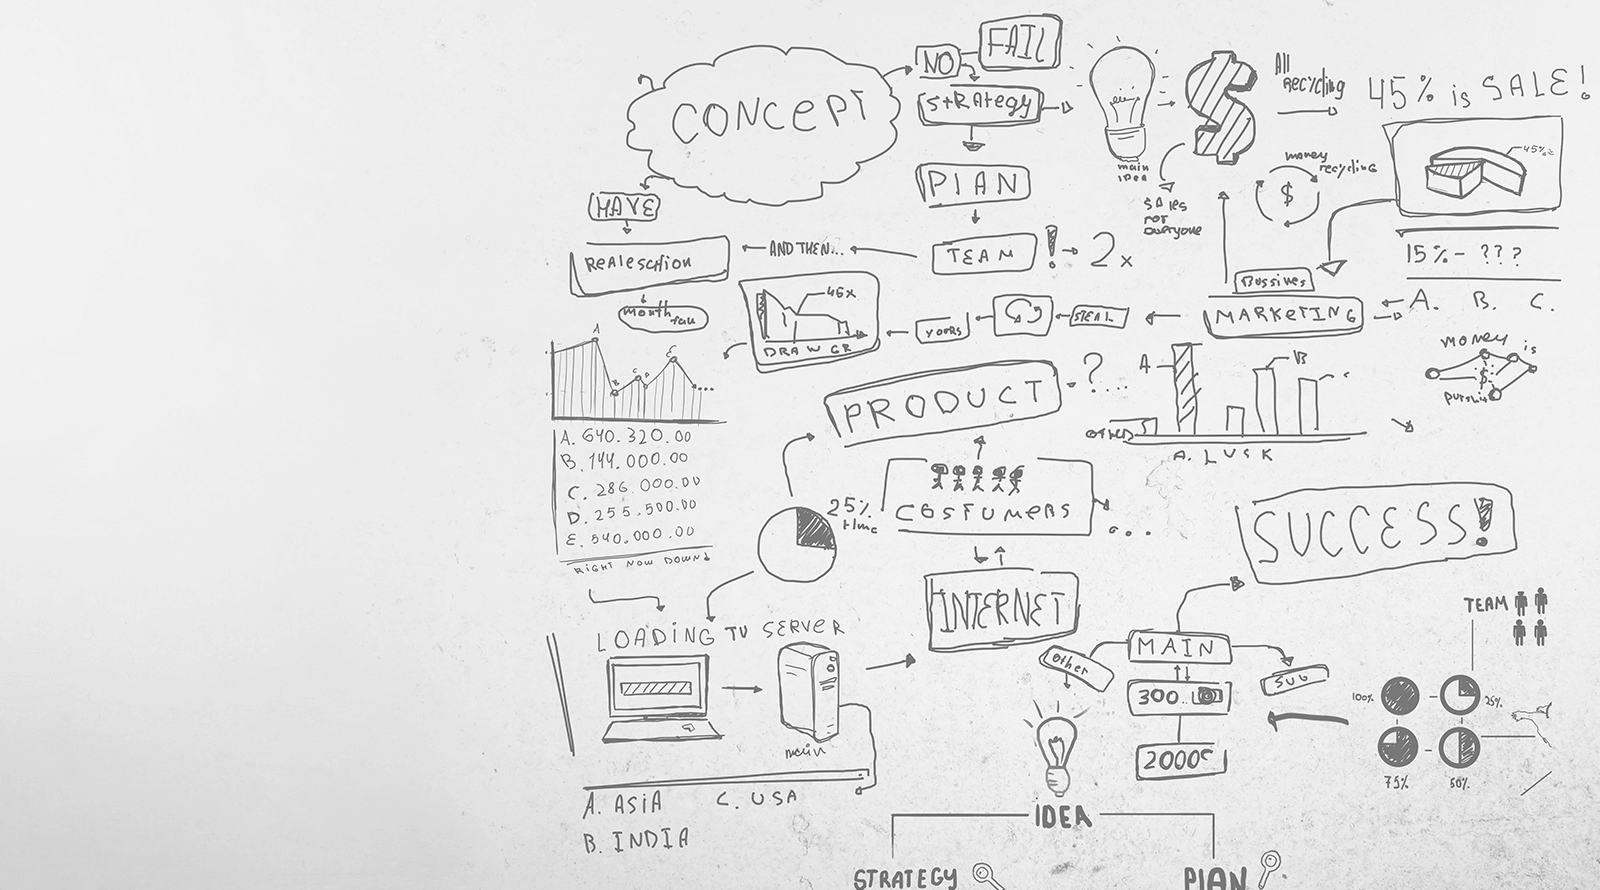 CONCEPT
NO
FAIL
StRAtegy
PlAN
TEAM
! 2x
AND THEN...
HAVE
month
main
IDEA
SAles
not
everyone
All
Recycling
45% is SALE!
money
recycling
$
45%
15% - ???
A. B. C.
Bussines
MARKETING
STEAL
yours
45x
DRAW GR
A
B
C
D
E
...
A. 640.320.00
B. 144.000.00
C. 286.000.00
D. 255.500.00
E. 540.000.00
RIGHT NOW DOWN!
PRODUCT
- ?....
A
B
A. LUSK
MONEY is
$
COSTUMERS
...
25%
time
SUCCESS!
INTERNET
LOADING TU SERVER
main
A. ASIA
C. USA
B. INDIA
MAIN
Other
SUB
300..
IDEA
STRATEGY
PlAN
TEAM
100%
25%
75%
50%